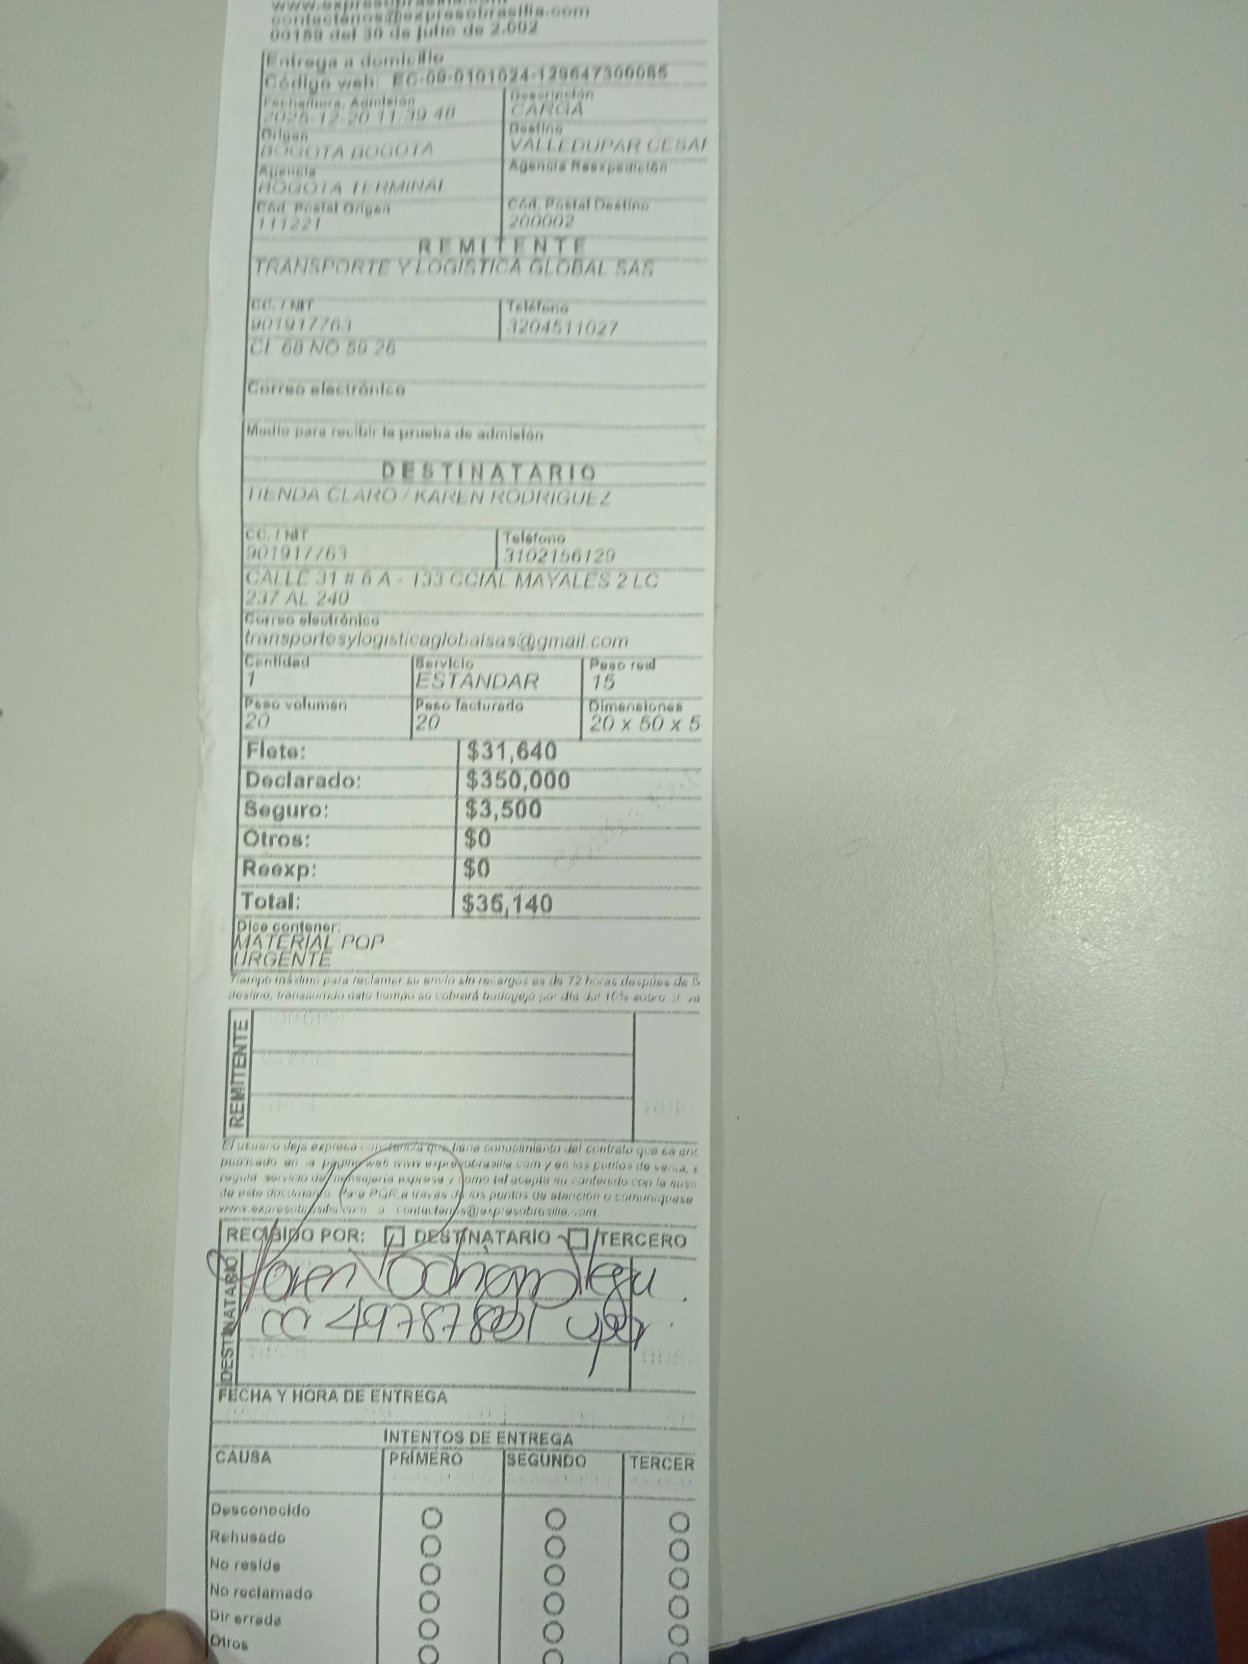 www.expresobrasilia.com
contactenos@expresobrasilia.com
00189 del 30 de julio de 2.002
Entrega a domicilio
Código web: EC-09-0101024-129647300085
Fecha/hora. Admisión
2025-12-20 11:39:48
Descripción
CARGA
Origen
BOGOTA BOGOTA
Destino
VALLEDUPAR CESAR
Agencia
BOGOTA TERMINAL
Agencia Reexpedición
Cód. Postal Origen
111221
Cód. Postal Destino
200002
REMITENTE
TRANSPORTE Y LOGISTICA GLOBAL SAS
CC. / NIT
901917763
Teléfono
3204511027
CL 68 NO 59 26
Correo electrónico
Medio para recibir la prueba de admisión
DESTINATARIO
TIENDA CLARO / KAREN RODRIGUEZ
CC. / NIT
901917763
Teléfono
3102156129
CALLE 31 # 6 A - 133 CCIAL MAYALES 2 LC
237 AL 240
Correo electrónico
transportesylogisticaglobalsas@gmail.com
Cantidad
1
Servicio
ESTANDAR
Peso real
15
Peso volumen
20
Peso facturado
20
Dimensiones
20 x 50 x 5
Flete: $31,640
Declarado: $350,000
Seguro: $3,500
Otros: $0
Reexp: $0
Total: $35,140
Dice contener:
MATERIAL POP
URGENTE
Tiempo máximo para reclamar su envío sin recargos es de 72 horas después de
destino, transcurrido este tiempo se cobrará bodegaje por día del 10% sobre el va
REMITENTE
El usuario deja expresa constancia que tiene conocimiento del contrato que se enc
publicado en la página web www.expresobrasilia.com y en los puntos de venta,
regula servicio de mensajería expresa y como tal acepta su contenido con la susc
de este documento. Para PQR a traves de los puntos de atención o comuniquese
www.expresobrasilia.com o contactenos@expresobrasilia.com.
RECIBIDO POR: DESTINATARIO TERCERO
DESTINATARIO
Karen
CC 49787831
FECHA Y HORA DE ENTREGA
INTENTOS DE ENTREGA
CAUSA PRIMERO SEGUNDO TERCER
Desconocido
Rehusado
No reside
No reclamado
Dir errada
Otros